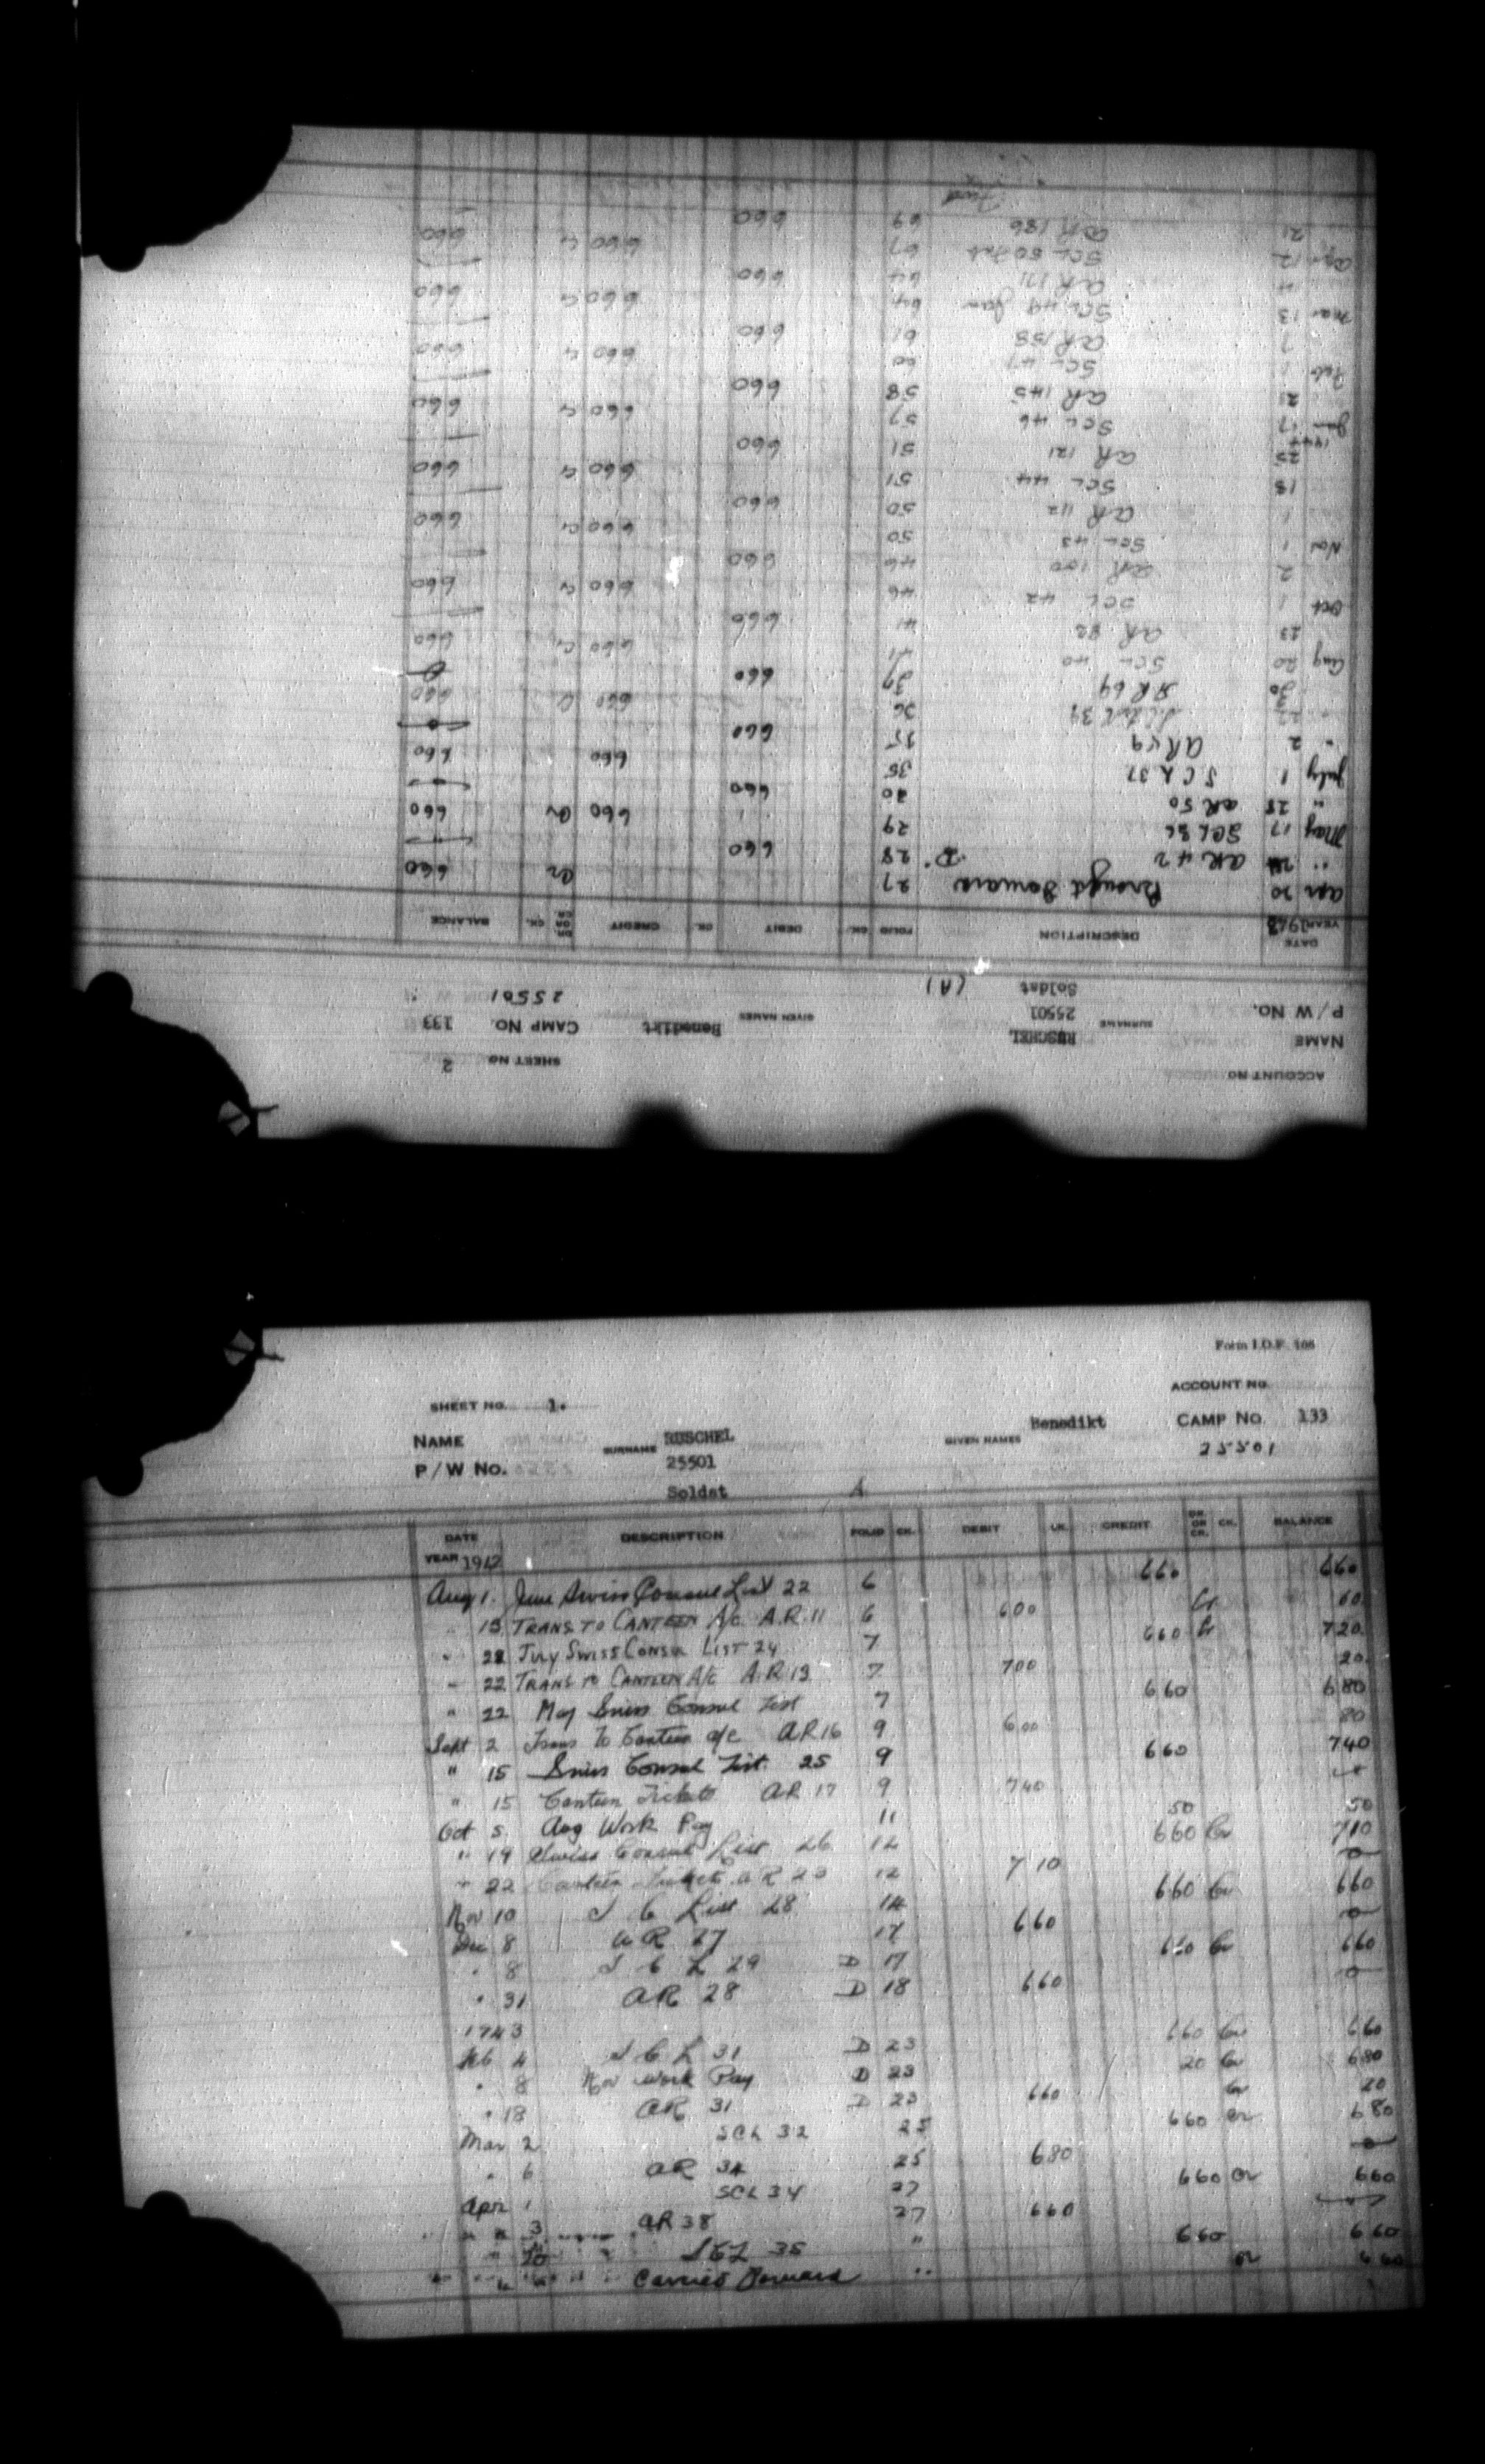 ACCOUNT NO
SHEET NO 2
NAME SURNAME RUSCHEL GIVEN NAMES Benedikt CAMP NO. 133
P/W NO. 25501 25501
Soldat (A)
DATE YEAR 1943 DESCRIPTION FOLIO CK. DEBIT CK. CREDIT DR OR CR. CK. BALANCE
Apr 30 Brought Forward 27 Cr 660
" 24 AR 42 D. 28 660
May 17 SCL 36 29 660 Cr 660
" 28 AR 50 30 660
July 1 SCL 37 35 660 660
" 2 AR 59 35 660 0
39 36 660 Cr 660
30 AR 69 39 660 0
Aug 20 SCL 40 41 660 Cr 660
23 AR 82 41 660
Oct 1 SCL 42 46 660 Cr 660
2 AR 100 46 660
Nov 1 SCL 43 50 660 Cr 660
1 AR 112 50 660
18 SCL 44 51 660 Cr 660
25 AR 121 51 660
1944
Jan 17 SCL 46 57 660 Cr 660
21 AR 145 58 660
Feb 1 SCL 47 60 660 Cr 660
7 AR 158 61 660
Mar 13 SCL 49 Jan 64 660 Cr 660
4 AR 171 64 660
Apr 12 SCL 50 Feb 67 660 Cr 660
21 AR 186 69 660
Form I.O.F. 106
ACCOUNT NO
SHEET NO. 1.
NAME SURNAME RUSCHEL GIVEN NAMES Benedikt CAMP NO. 133
P/W No. 25501 25501
Soldat A
DATE YEAR 1942 DESCRIPTION FOLIO CK. DEBIT CK. CREDIT DR OR CR. CK. BALANCE
Aug 1. June Swiss Consul List 22 6 660 660
" 13 TRANS TO CANTEEN A/C A.R. 11 6 600 Cr 60
" 22 July SWISS CONSUL LIST 24 7 660 Cr 720
" 22 TRANS TO CANTEEN A/C A.R. 13 7 700 20
" 22 May Swiss Consul List 7 660 680
Sept 2 Trans to Canteen a/c AR 16 9 600 80
" 15 Swiss Consul List. 25 9 660 740
" 15 Canteen Tickets AR 17 9 740 0
Oct 5 Aug Work Pay 11 50 50
" 19 Swiss Consul List 26 12 660 Cr 710
" 22 Canteen Tickets AR 23 12 710 0
Nov 10 S C List 28 14 660 Cr 660
Dec 8 AR 27 17 660 0
" 8 S C L 29 D 17 660 Cr 660
" 31 AR 28 D 18 660 0
1943
Feb 4 S C L 31 D 23 660 Cr 660
" 8 Nov Work Pay D 23 20 Cr 680
" 18 AR 31 D 23 660 Cr 20
Mar 2 SCL 32 25 660 Cr 680
" 6 AR 34 25 680 0
Apr 1 SCL 34 27 660 Cr 660
" " 3 AR 38 27 660 0
" 20 SCL 35 " 660 660
Carried Forward " Cr 660